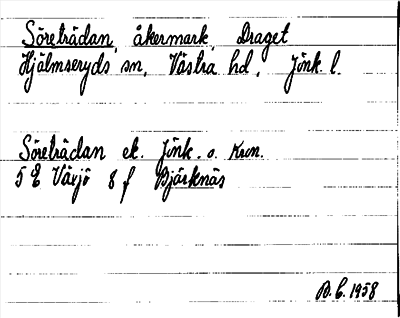 Söreträdan, åkermark, Draget
Hjälmseryds sn, Västra hd, Jönk. l.
Söreträdan ek. Jönk. o. Kron.
5 E Växjö 8 f Bjärknäs
B.C. 1958